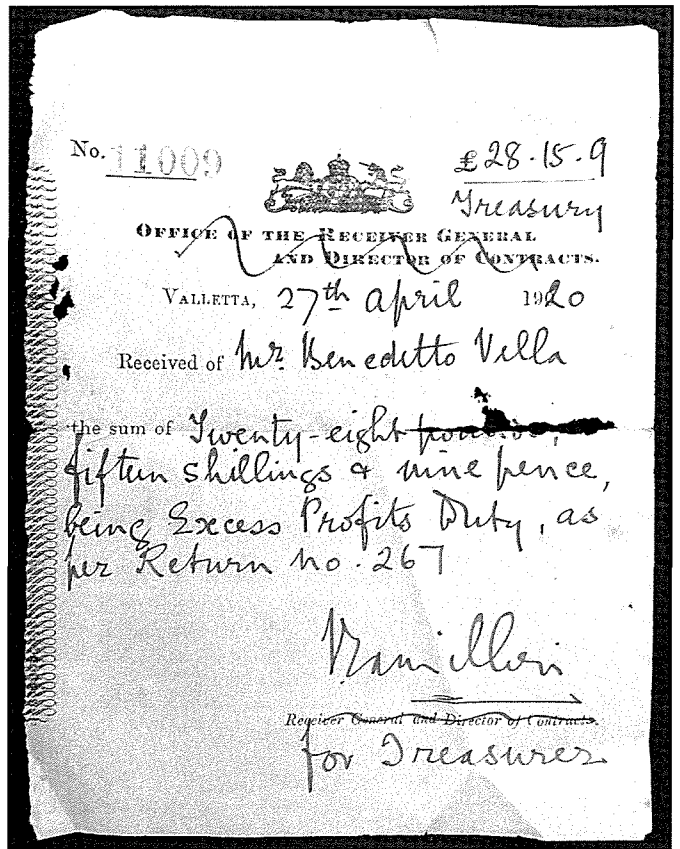 No. 11009
£28.15.9
Treasury
OFFICE OF THE RECEIVER GENERAL
AND DIRECTOR OF CONTRACTS.
VALLETTA, 27th April 1920
Received of Mr. Benedetto Vella
the sum of Twenty-eight pounds,
fifteen shillings & nine pence,
being Excess Profits Duty, as
per Return no. 267
Receiver General and Director of Contracts.
for Treasurer